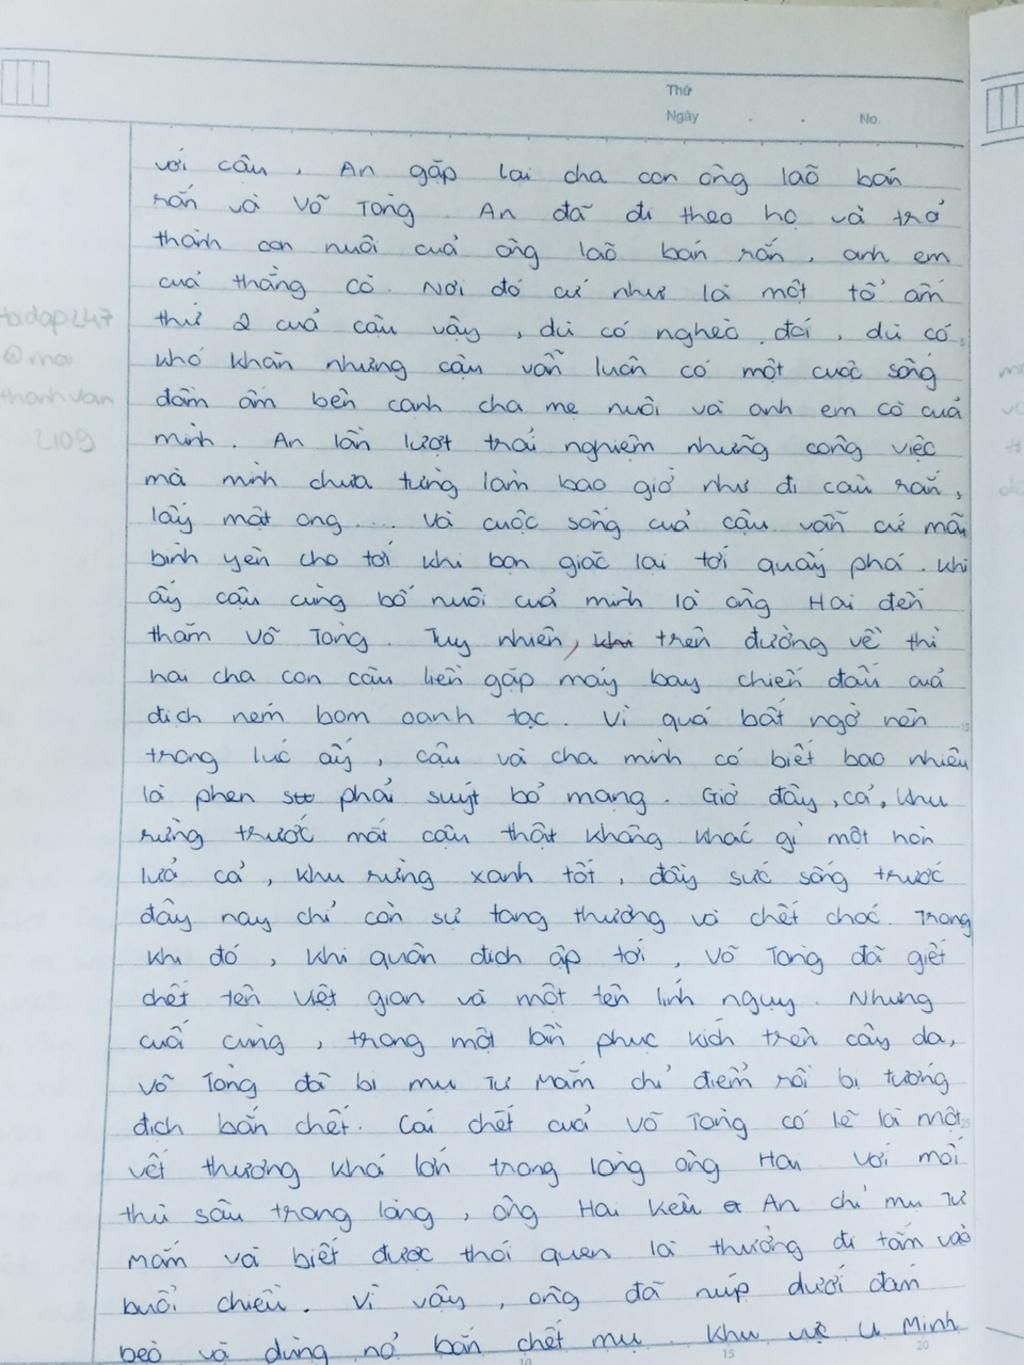 Thứ
Ngày . . No.
với cậu, An gặp lại cha con ông lão bán
rắn và Võ Tòng. An đã đi theo họ và trở
thành con nuôi của ông lão bán rắn, anh em
của thằng Cò. Nơi đó cứ như là một tổ ấm
thứ 2 của cậu vậy, dù có nghèo đói, dù có
khó khăn nhưng cậu vẫn luôn có một cuộc sống
đầm ấm bên cạnh cha mẹ nuôi và anh em cò của
mình. An lần lượt trải nghiệm những công việc
mà mình chưa từng làm bao giờ như đi câu rắn,
lấy mật ong.... Và cuộc sống của cậu vẫn cứ mãi
bình yên cho tới khi bọn giặc lại tới quấy phá. Khi
ấy cậu cùng bố nuôi của mình là ông Hai đến
thăm Võ Tòng. Tuy nhiên, khi trên đường về thì
hai cha con cậu liền gặp máy bay chiến đấu của
địch ném bom oanh tạc. Vì quá bất ngờ nên
trong lúc ấy, cậu và cha mình có biết bao nhiêu
là phen phải suýt bỏ mạng. Giờ đây, cả, khu
rừng trước mắt cậu thật không khác gì một hòn
lửa cả, khu rừng xanh tốt, đầy sức sống trước
đây nay chỉ còn sự tang thương và chết chóc. Trong
khi đó, khi quân địch ập tới, Võ Tòng đã giết
chết tên Việt gian và một tên lính ngụy. Nhưng
cuối cùng, trong một lần phục kích trên cây da,
Võ Tòng đã bị mụ Tư Mắm chỉ điểm rồi bị tướng
địch bắn chết. Cái chết của Võ Tòng có lẽ là một
vết thương khá lớn trong lòng ông Hai. Với mối
thù sâu trong lòng, ông Hai kêu An chỉ mụ Tư
Mắm và biết được thói quen là thường đi tắm vào
buổi chiều. Vì vậy, ông đã núp dưới đám
bèo và dùng nỏ bắn chết mụ. Khu vực U Minh
hoidap247
@mai
thanhvan
2109
10 15 20